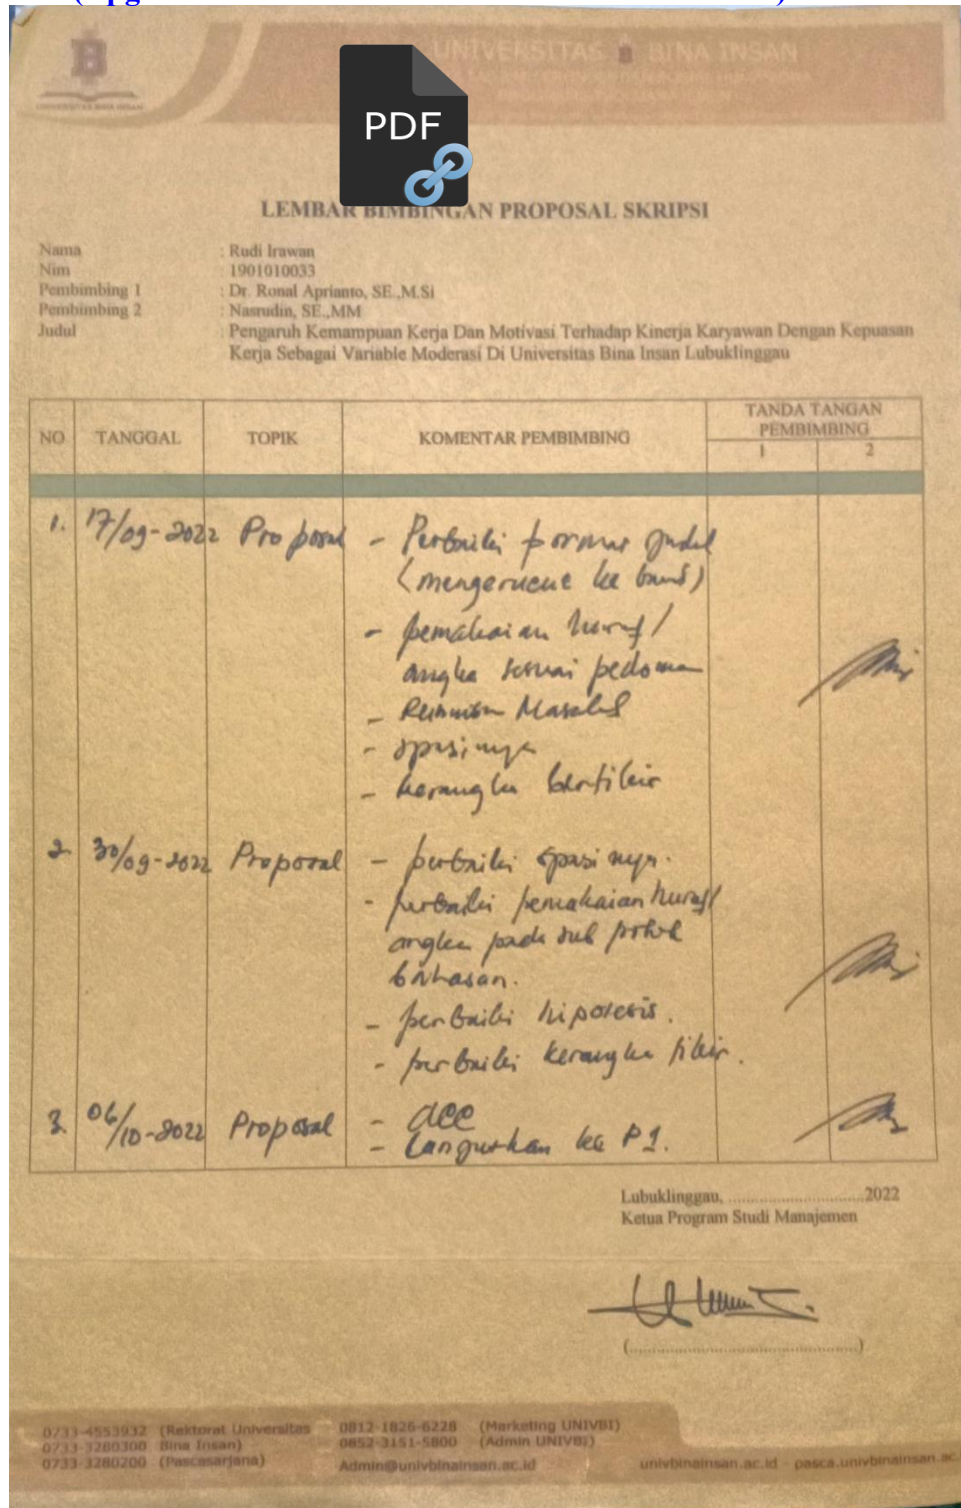 UNIVERSITAS BINA INSAN
UNIVERSITAS BINA INSAN
PDF
LEMBAR BIMBINGAN PROPOSAL SKRIPSI
Nama : Rudi Irawan
Nim : 1901010033
Pembimbing 1 : Dr. Ronal Aprianto, SE.,M.Si
Pembimbing 2 : Nasrudin, SE.,MM
Judul : Pengaruh Kemampuan Kerja Dan Motivasi Terhadap Kinerja Karyawan Dengan Kepuasan
Kerja Sebagai Variable Moderasi Di Universitas Bina Insan Lubuklinggau
NO TANGGAL TOPIK KOMENTAR PEMBIMBING TANDA TANGAN
PEMBIMBING
1 2
1. 17/09-2022 Proposal - Perbaiki format Judul
(mengerucut ke bawah)
- pemakaian huruf/
angka sesuai pedoman
- Rumusan Masalah
- spasinya
- kerangka berfikir
2. 30/09-2022 Proposal - perbaiki spasinya.
- perbaiki pemakaian huruf/
angka pada sub pokok
bahasan.
- perbaiki hipotesis.
- perbaiki kerangka fikir.
3. 06/10-2022 Proposal - acc
- Langutkan ke P1.
Lubuklinggau, ..............................2022
Ketua Program Studi Manajemen
(....................................................)
0733-4553932 (Rektorat Universitas 0812-1826-6228 (Marketing UNIVBI)
0733-3280300 Bina Insan) 0852-3151-5800 (Admin UNIVBI)
0733-3280200 (Pascasarjana) Admin@univbinainsan.ac.id univbinainsan.ac.id - pasca.univbinainsan.ac.